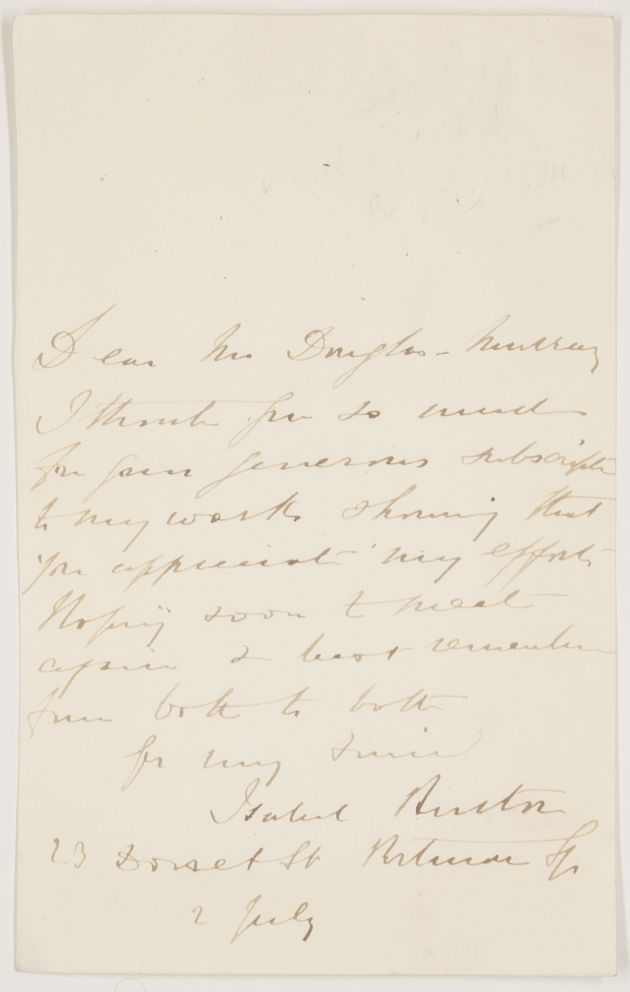 Dear Mr Douglas-Murray
I thank you so much
for your generous subscripti
to my work showing that
you appreciate my efforts
Hoping soon to meet
again & best remembr
from both to both
yr very sincere
Isabel Burton
23 Dorset St Portman Sq
2 July